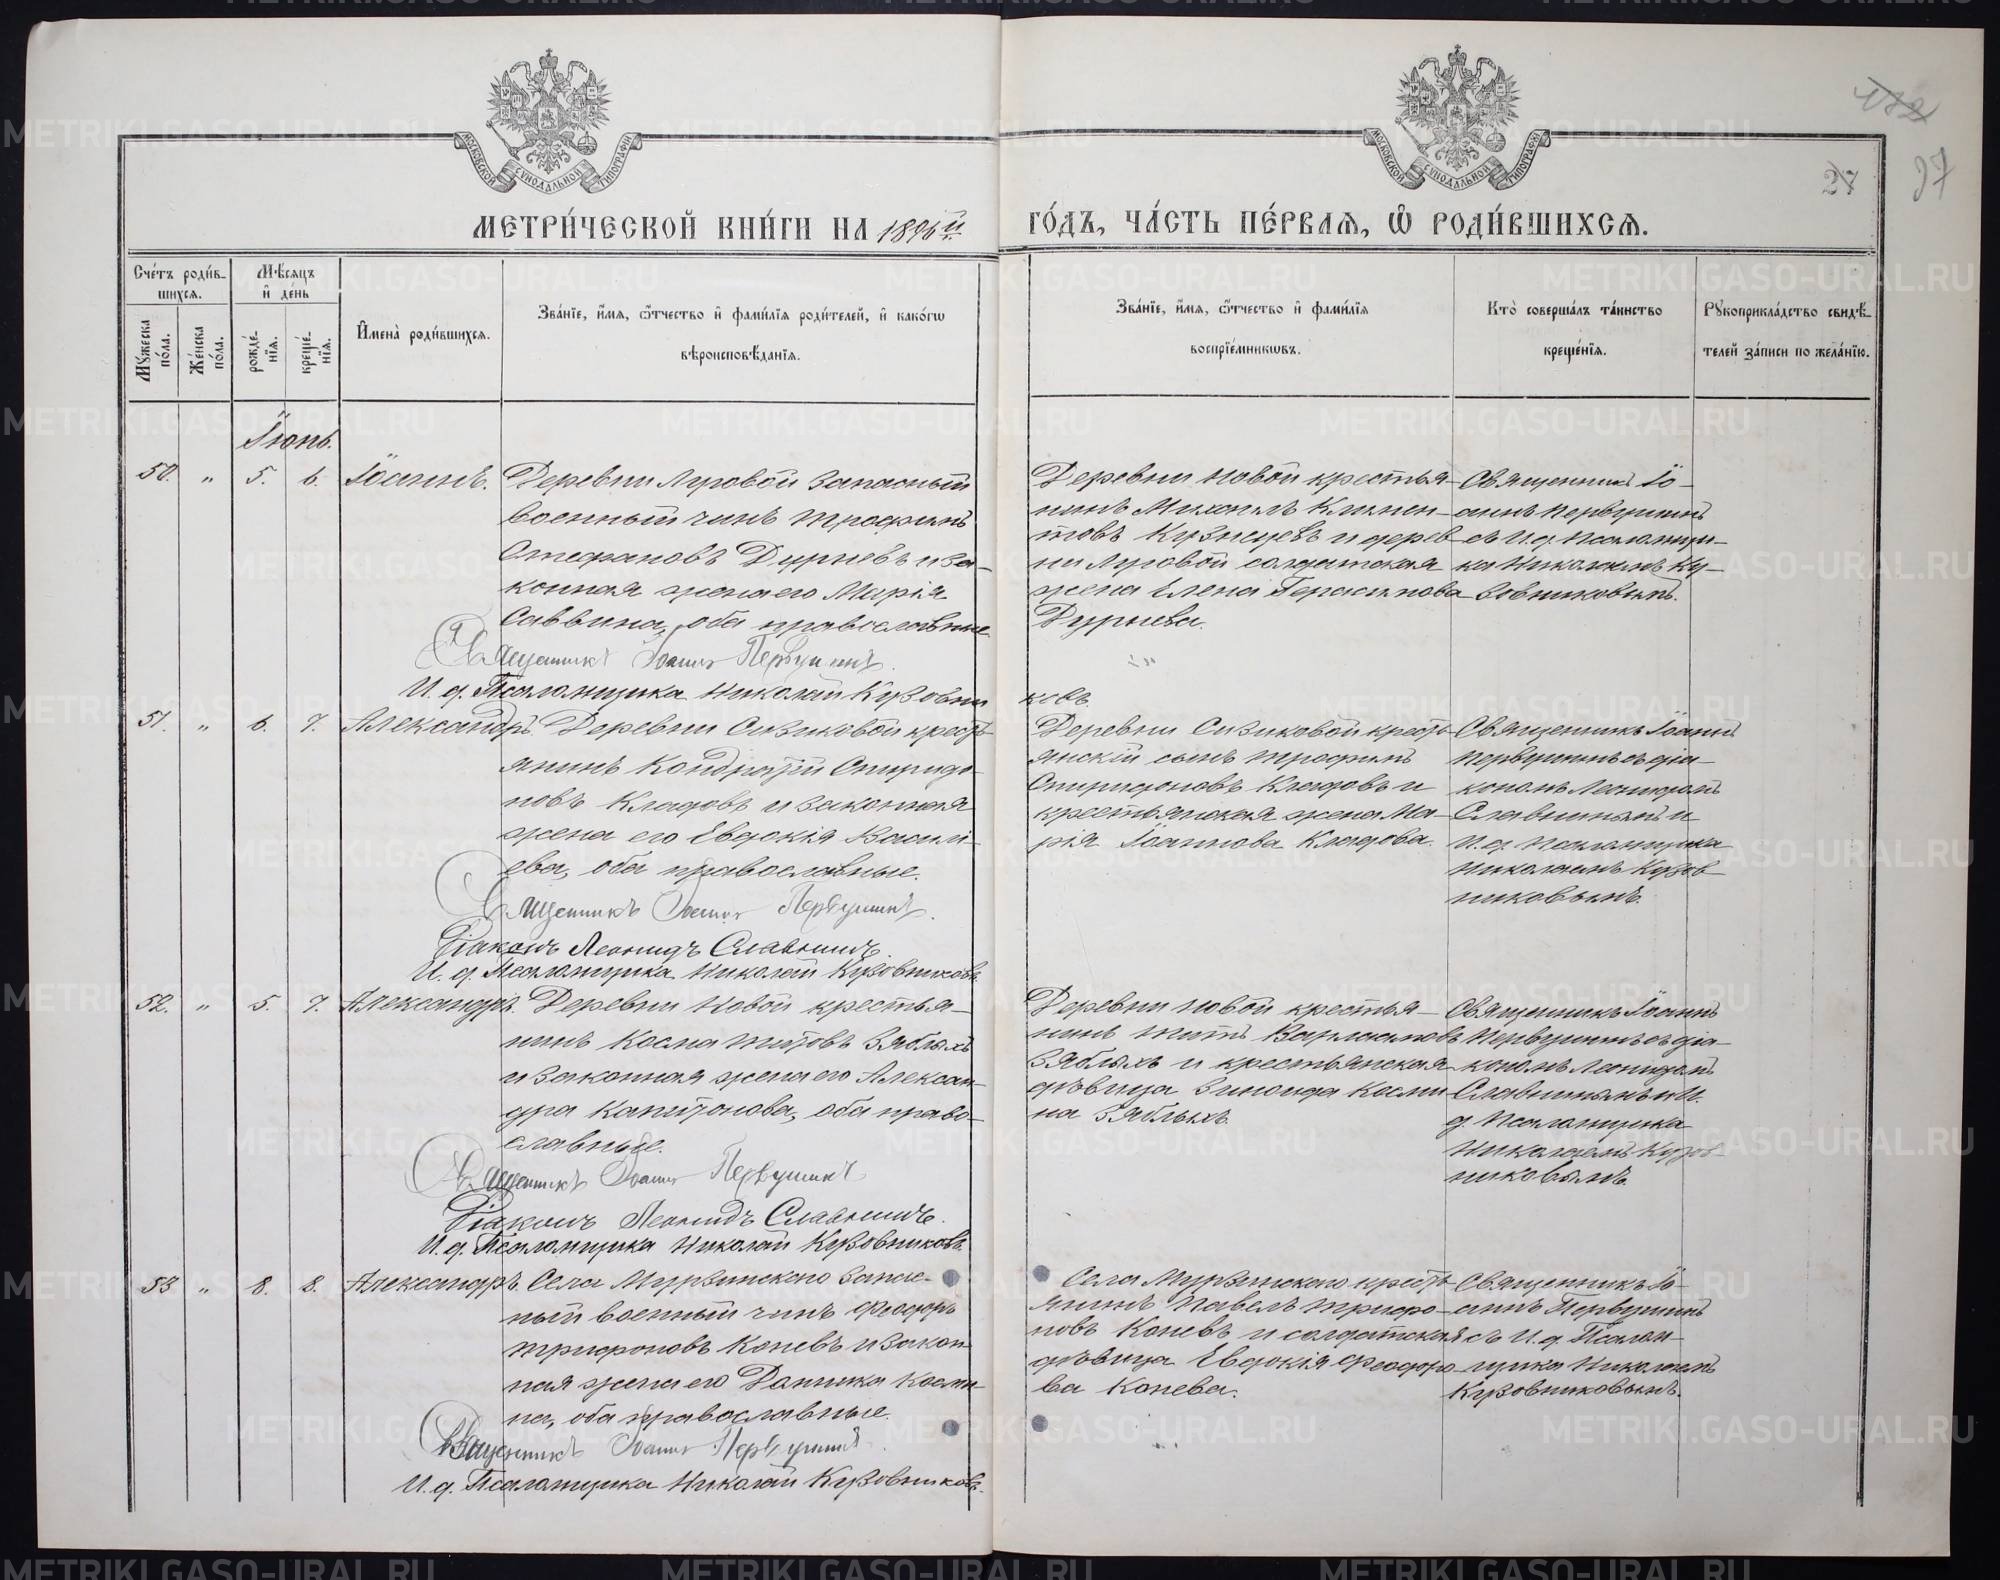 МЕТРИ́ЧЕСКОЙ КНИ́ГИ НА 1896й
ГО́ДЪ, ЧА́СТЬ ПЕ́РВАѦ, Ѡ҆ РОДИ́ВШИХСѦ.
МОСКОВСКОЙ СУНОДАЛЬНОЙ ТИПОГРАФІИ
МОСКОВСКОЙ СУНОДАЛЬНОЙ ТИПОГРАФІИ
27
37
Сче́тъ роди́в-
шихсѧ.
Мѣ́сѧцъ
и҆ де́нь
Мꙋ́жеска по́ла.
Же́нска по́ла.
рожде́-нїѧ.
креще́-нїѧ.
И҆мена̀ роди́вшихсѧ.
Зва́нїе, и҆́мѧ, ѻ҆́тчество и҆ фами́лїѧ роди́телей, и҆ како́гѡ
вѣроисповѣ́данїѧ.
Зва́нїе, и҆́мѧ, ѻ҆́тчество и҆ фами́лїѧ
воспрїе́мникѡвъ.
Кто̀ соверша́лъ та́инство
креще́нїѧ.
Рꙋкоприкла́дство свидѣ́-
телей за́писи по жела́нїю.
Іюнь.
50. „ 5. 6. Іоаннъ.
Деревни Луговой запасный
военный чинъ Трофимъ
Стефановъ Дурневъ и за-
конная жена его Марія
Саввина, оба православные.
Священникъ Іоаннъ Первушинъ.
И. д. Псаломщика Николай Кузовни
ковъ.
Деревни Новой крестья-
нинъ Михаилъ Климен-
товъ Кузнецовъ и дерев-
ни Луговой солдатская
жена Елена Герасимова
Дурнева.
Священникъ Іо-
аннъ Первушинъ
съ И. д. Псаломщи-
ка Николаемъ Ку-
зовниковымъ.
51. „ 6. 7. Александръ.
Деревни Сизиковой кресть-
янинъ Кондратій Спиридо-
новъ Кладовъ и законная
жена его Евдокія Василі-
ева, оба православные.
Священникъ Іоаннъ Первушинъ.
Діаконъ Леонидъ Славнинъ.
И. д. Псаломщика Николай Кузовниковъ.
Деревни Сизиковой кресть-
янскій сынъ Трофимъ
Спиридоновъ Кладовъ и
крестьянская жена Ма-
рія Іоаннова Кладова.
Священникъ Іоаннъ
Первушинъ съ діа-
кономъ Леонидомъ
Славнинымъ и
И. д. Псаломщика
Николаемъ Кузов
никовымъ.
52. „ 5. 7. Александръ.
Деревни Новой крестья-
нинъ Косма Титовъ Зяблыхъ
и законная жена его Алексан-
дра Капитонова, оба право-
славные.
Священникъ Іоаннъ Первушинъ
Діаконъ Леонидъ Славнинъ.
И. д. Псаломщика Николай Кузовниковъ.
Деревни Новой крестья-
нинъ Титъ Варлаамовъ
Зяблыхъ и крестьянская
дѣвица Зиноида Косми
на Зяблыхъ.
Священникъ Іоаннъ
Первушинъ съ діа-
кономъ Леонидомъ
Славнинымъ и И.
д. Псаломщика
Николаемъ Кузов
никовымъ.
53 „ 8. 8. Александръ.
Села Мурзинскаго запас-
ный военный чинъ Феодоръ
Трифоновъ Коневъ и закон-
ная жена его Домника Косми-
на, оба православные.
Священникъ Іоаннъ Первушинъ.
И. д. Псаломщика Николай Кузовниковъ.
Села Мурзинскаго кресть-
янинъ Павелъ Трифо-
новъ Коневъ и солдатская
дѣвица Евдокія Феодоро
ва Конева.
Священникъ Іо-
аннъ Первушинъ
съ И. д. Псалом-
щика Николаемъ
Кузовниковымъ.
METRIKI.GASO-URAL.RU